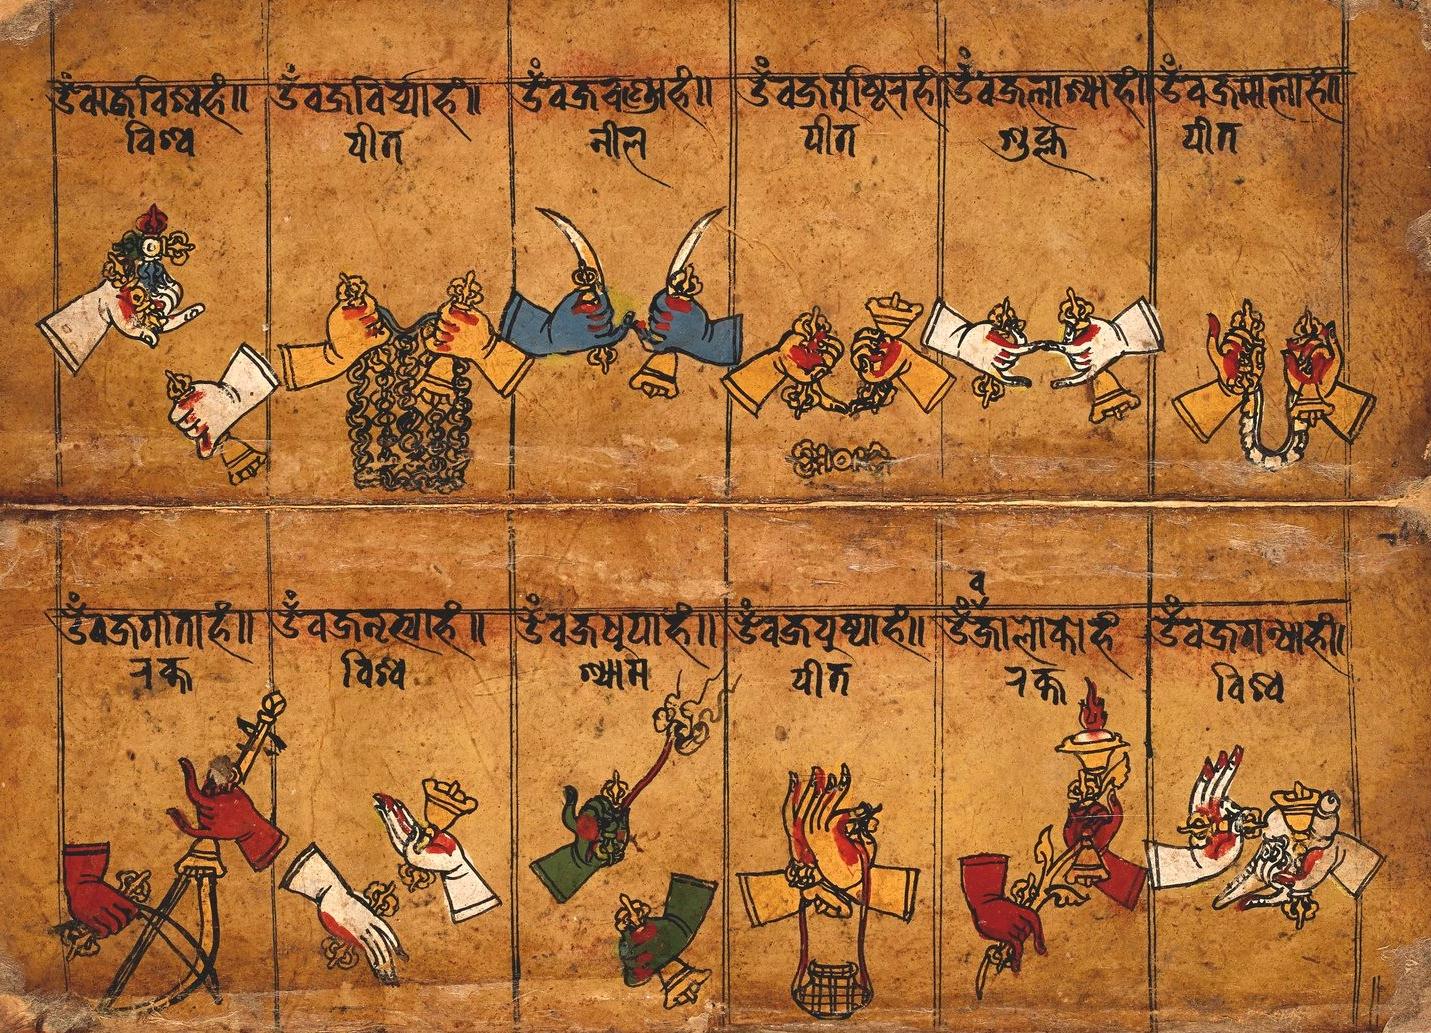 ॐ वज्रविश्वहूं॥
विश्व
ॐ वज्रवीर्याहूं॥
पीत
ॐ वज्रचण्डाहूं॥
नील
ॐ वज्रमुष्टिरहूं॥
पीत
ॐ वज्रलाश्याहूं॥
शुक्ल
ॐ वज्रमालाहूं॥
पीत
ॐ वज्रगीताहूं॥
रक्त
ॐ वज्रनृत्याहूं॥
विश्व
ॐ वज्रधुपाहूं॥
श्याम
ॐ वज्रपुष्पाहूं॥
पीत
व
रक्त
ॐ वज्रगन्धाहूं॥
विश्व